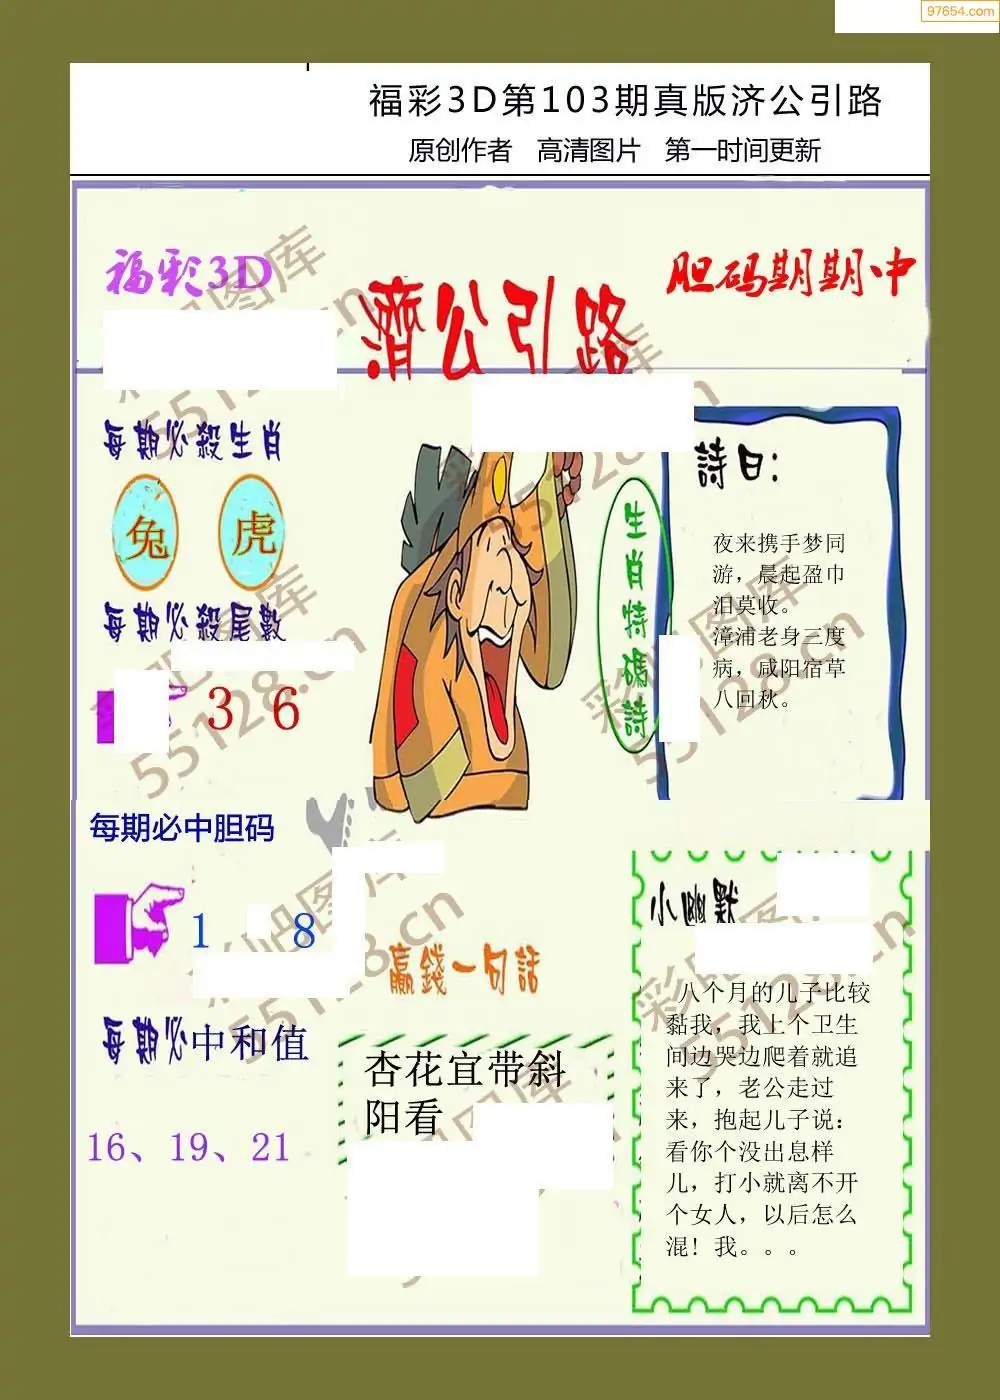 97654.com
福彩3D第103期真版济公引路
原创作者 高清图片 第一时间更新
福彩3D
濟公引路
胆码期期中
每期必殺生肖
兔 虎
每期必殺尾數
3 6
生肖特碼詩
詩曰:
夜来携手梦同
游，晨起盈巾
泪莫收。
漳浦老身三度
病，咸阳宿草
八回秋。
每期必中胆码
1 8
每期必中和值
16、19、21
贏錢一句話
杏花宜带斜
阳看
小幽默
八个月的儿子比较
黏我，我上个卫生
间边哭边爬着就追
来了，老公走过
来，抱起儿子说：
看你个没出息样
儿，打小就离不开
个女人，以后怎么
混！我。。。
彩吧图库
55128.cn
彩吧图库
55128.cn
彩吧图库
55128.cn
彩吧图库
55128.cn
彩吧图库
55128.cn
彩吧图库
55128.cn